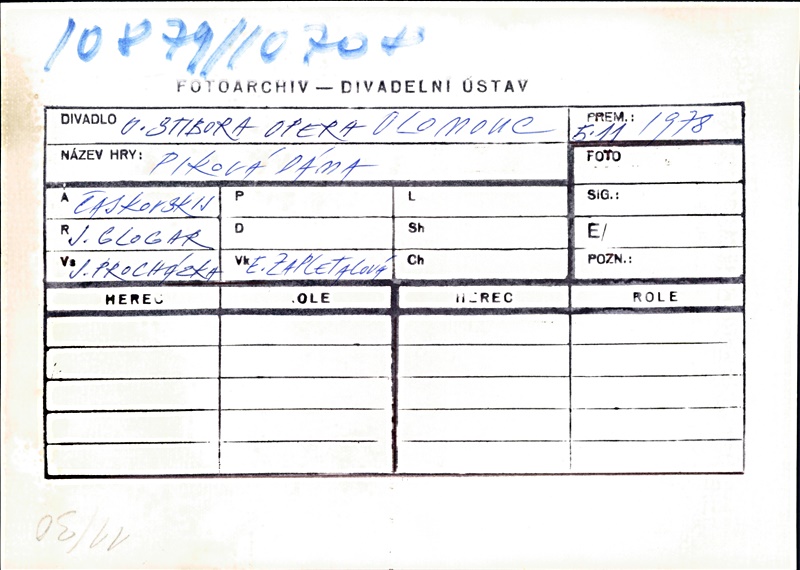 10879//10708
FOTOARCHIV — DIVADELNÍ ÚSTAV
DIVADLO O. STIBORA OPERA OLOMOUC PREM.: 5.11 1978
NÁZEV HRY: PIKOVÁ DÁMA FOTO
A ČAJKOVSKIJ P L SIG.:
R J. GLOGAR D Sh E/
Vs J. PROCHÁZKA Vk E. ZAPLETALOVÁ Ch POZN.:
HEREC ROLE HEREC ROLE